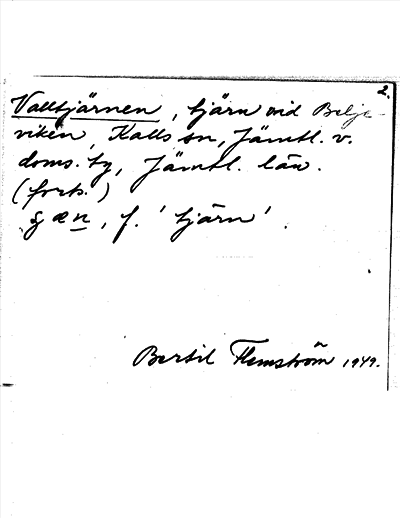 2.
Valltjärnen, tjärn vid Belje-
viken, Kalls sn, Jämtl. v.
doms. tg, Jämtl. län.
(forts.)
f. 'tjärn'.
Bertil Flemström 1949.